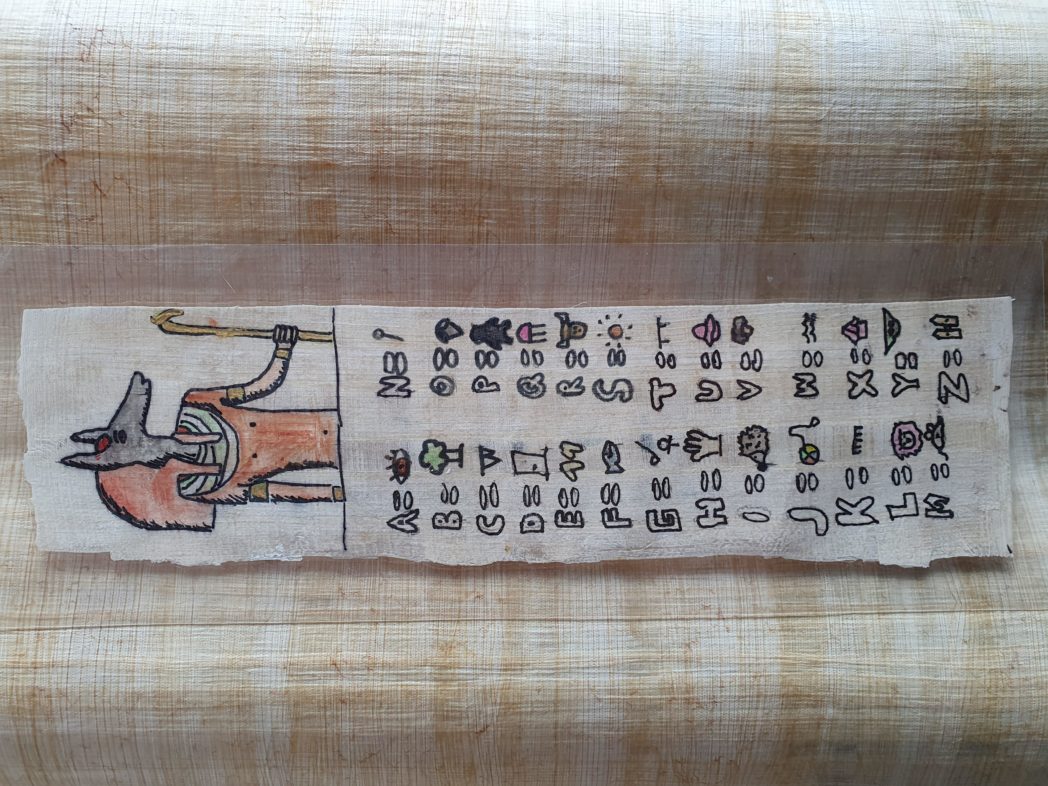 A=
B=
C=
D=
E=
F=
G=
H=
I=
J=
K=
L=
M=
N=
O=
P=
Q=
R=
S=
T=
U=
V=
W=
X=
Y=
Z=